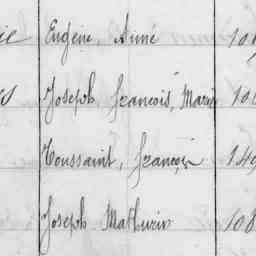 Eugène, Aimé
Joseph François, Marie
Toussaint, François
Joseph Mathurin 108